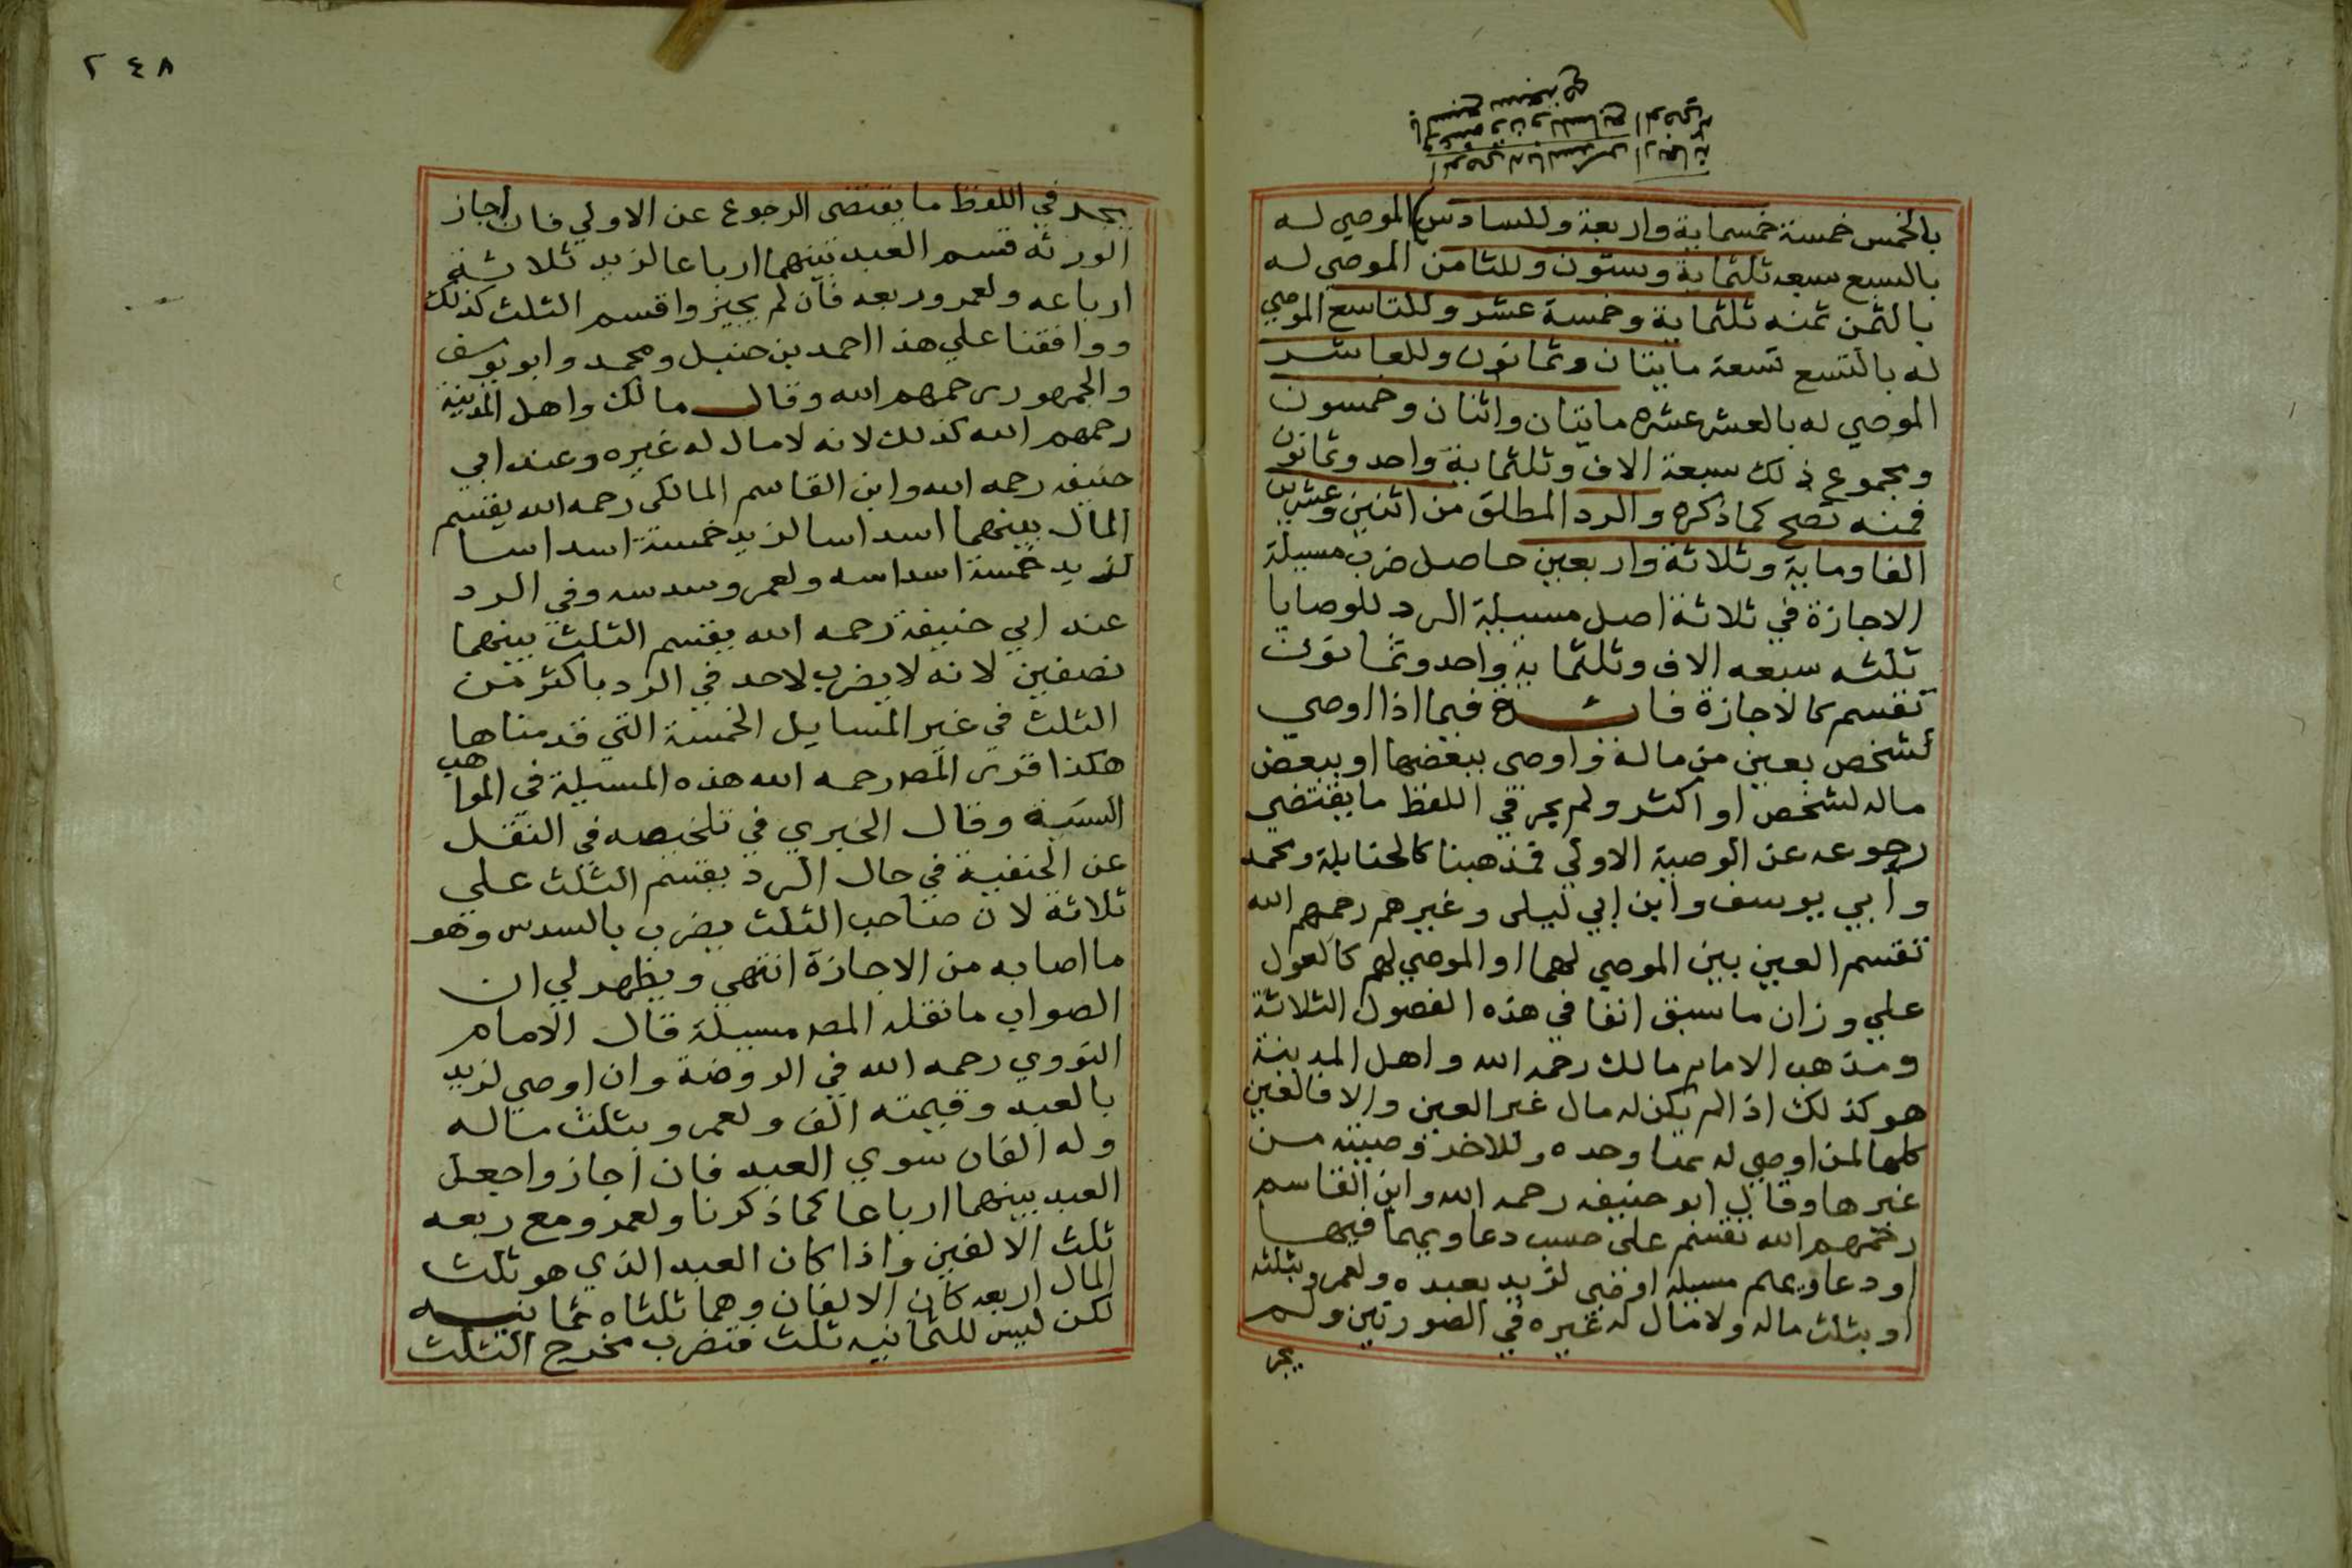 بالخمس خمسة خمسماية واربعة وللسادس الموصي له
بالسبع سبعه ثلثماية وستون وللثامن الموصي له
بالثمن ثمنه ثلثماية وخمسة عشر وللتاسع الموصي
له بالتسع تسعة مايتان وثمانون وللعاشر
الموصي له بالعشر عشره مايتان واثنان وخمسون
ومجموع ذلك سبعة الاف وثلثماية واحد وثمانون
فمنه تصح كما ذكره والرد المطلق من اثنين وعشرين
الفا وماية وثلاثة واربعين حاصل ضرب مسيلة
الاجازة في ثلاثة اصل مسيلة الرد للوصايا
ثلثه سبعه الاف وثلثماية واحد وثمانون
تقسم كالاجازة فايدة فيما اذا اوصي
لشخص بعين من ماله واوصى ببعضها او ببعض
ماله لشخص او اكثر ولم يجر في اللفظ ما يقتضي
رجوعه عن الوصية الاولي فمذهبنا كالحنابلة ومحمد
وابي يوسف وابن ابي ليلى وغيرهم رحمهم الله
تقسم العين بين الموصي لهما او الموصي لهم كالعول
علي وزان ما سبق انفا في هذه الفصول الثلاثة
ومذهب الامام مالك رحمه الله واهل المدينة
هو كذلك اذا لم يكن له مال غير العين والا فالعين
كلها لمن اوصي له بها وحده وللاخر وصيته من
غيرها وقال ابو حنيفه رحمه الله وابن القاسم
رحمهم الله تقسم على حسب دعاويهما فيها
او دعاويهم مسيلة اوصى لزيد بعبده ولعمرو بثلثه
او بثلث ماله ولا مال له غيره في الصورتين ولم
يجر
٢٤٨
يجر في اللفظ ما يقتضى الرجوع عن الاولي فان اجاز
الورثة قسم العبد بينهما ارباعا لزيد ثلاثة
ارباعه ولعمرو ربعه فان لم يجيزوا قسم الثلث كذلك
ووافقنا علي هذا احمد بن حنبل ومحمد وابو يوسف
والجمهور رحمهم الله وقال مالك واهل المدينة
رحمهم الله كذلك لانه لا مال له غيره وعند ابي
حنيفه رحمه الله وابن القاسم المالكى رحمه الله يقسم
المال بينهما اسداسا لزيد خمسة اسداسا
لزيد خمسة اسداسه ولعمرو سدسه وفي الرد
عند ابي حنيفة رحمه الله يقسم الثلث بينهما
نصفين لانه لا يضرب لاحد في الرد باكثر من
الثلث في غير المسايل الخمسة التي قدمناها
هكذا قرى المصر رحمه الله هذه المسيلة في المواهب
السنية وقال الخبري في تلخيصه في النقل
عن الحنفية في حال الرد يقسم الثلث علي
ثلاثة لان صاحب الثلث يضرب بالسدس وهو
ما اصابه من الاجازة انتهي ويظهر لي ان
الصواب ما نقله المصر مسيلة قال الامام
النووي رحمه الله في الروضة وان اوصي لزيد
بالعبد وقيمته الف ولعمرو بثلث ماله
وله الفان سوي العبد فان اجازوا جعل
العبد بينهما ارباعا كما ذكرنا ولعمرو مع ربعه
ثلث الالفين واذا كان العبد الذي هو ثلث
المال اربعه كان الالفان وهما ثلثاه ثمانيه
لكن ليس للثمانيه ثلث فتضرب مخرج الثلث